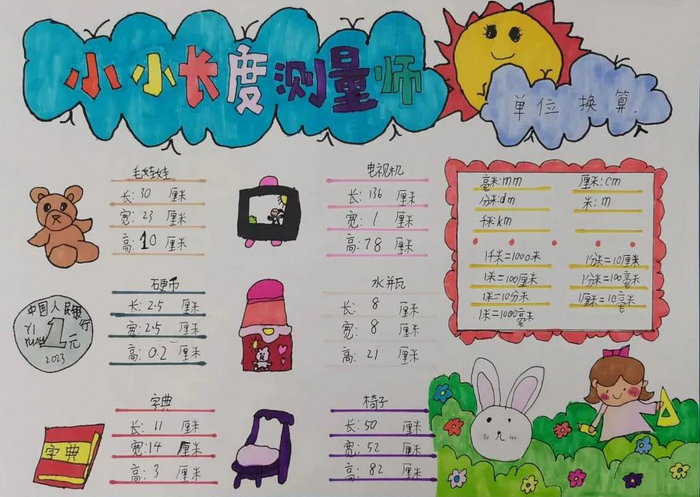 小小长度测量师
单位换算
毛娃娃
长:30 厘米
宽:23 厘米
高:10 厘米
电视机
长:136 厘米
宽:1 厘米
高:78 厘米
毫米:mm
厘米:cm
分米:dm
米:m
千米:km
1千米=1000米
1分米=10厘米
1米=100厘米
1分米=100毫米
1米=10分米
1厘米=10毫米
1米=1000毫米
硬币
长:2.5 厘米
宽:2.5 厘米
高:0.2 厘米
中国人民银行
YI
YUAN
1元
2023
水瓶
长:8 厘米
宽:8 厘米
高:21 厘米
字典
长:11 厘米
宽:14 厘米
高:3 厘米
字典
椅子
长:50 厘米
宽:52 厘米
高:82 厘米